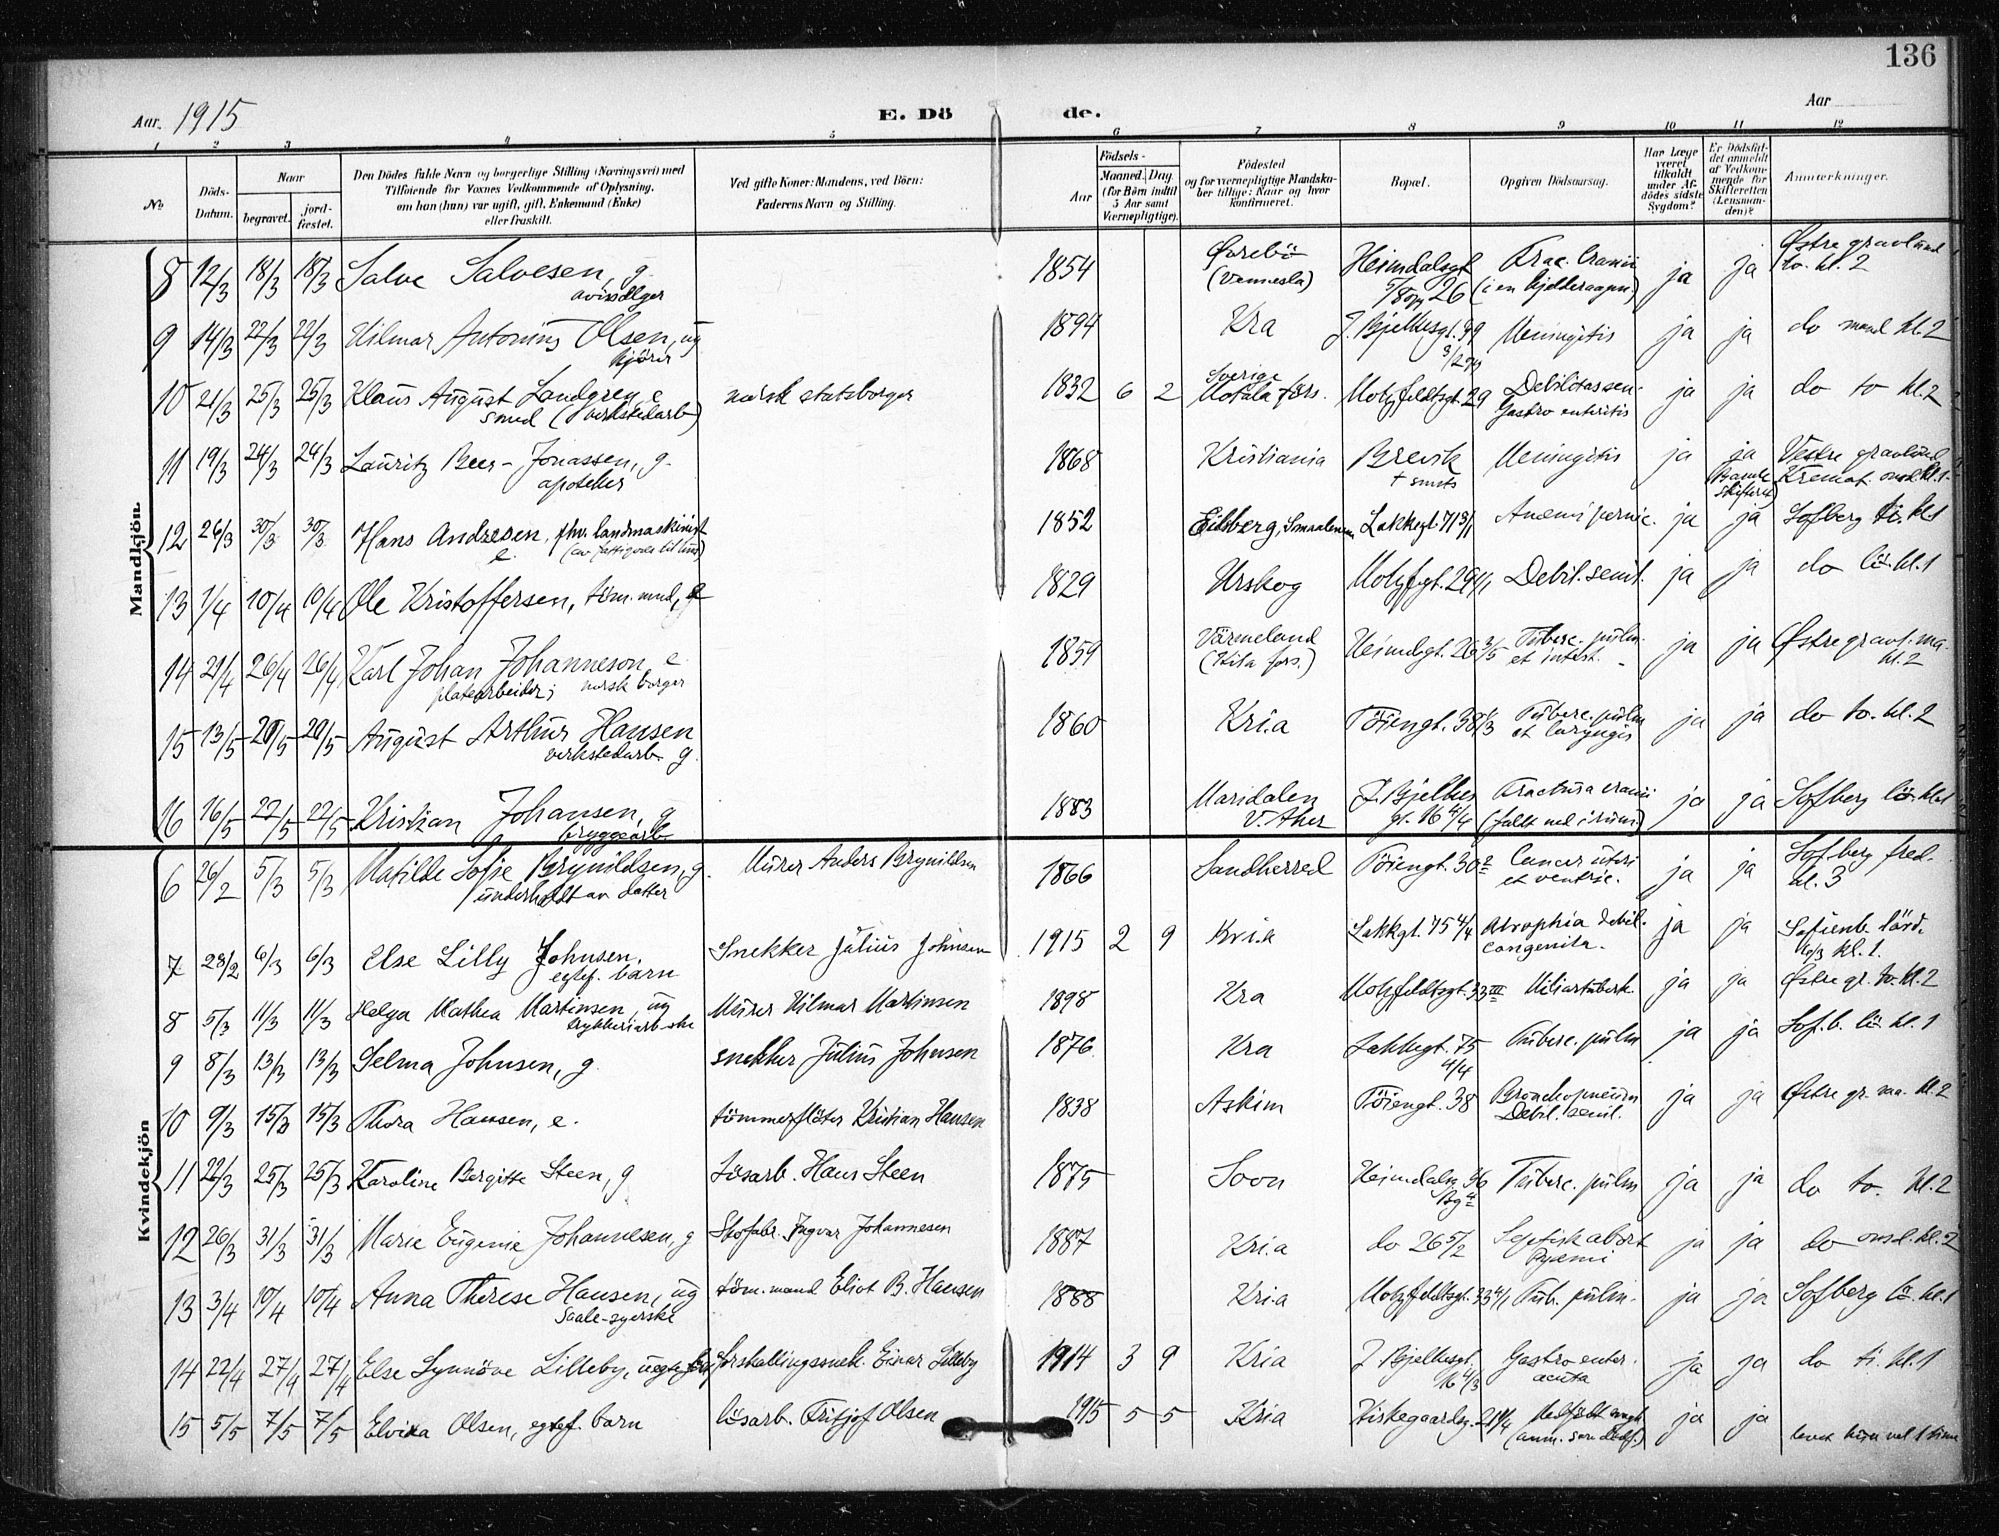 136
Aar. 1915
E. Dö de.
Aar
1 2 3 4 5 6 7 8 9 10 11 12
№
Döds-Datum.
Naar
begravet.
jord-fæstet.
Den Dödes fulde Navn og borgerlige Stilling (Næringsvei) med
Tilföiende for Voxnes Vedkommende af Oplysning,
om han (hun) var ugift, gift, Enkemand (Enke)
eller fraskilt.
Ved gifte Koner: Mandens, ved Börn:
Faderens Navn og Stilling.
Födsels-
Aar
Maaned. Dag.
(for Börn indtil
5 Aar samt
Værnepligtige).
Födested
og for værnepligtige Mandska-
ber tillige: Naar og hvor
konfirmeret.
Bopæl.
Opgiven Dödsaarsag.
Har Læge
været
tilkaldt
under Af-
dödes sidste
Sygdom?
Er Dödsfal-
det anmeldt
af Vedkom-
mende for
Skifteretten
(Lensman-
den)?
Anmærkninger.
Mandkjön.
8 12/3 18/3 18/3 Salve Salvesen, g. 1854 Øvrebö Heimdalsgt Frac. cranii ja ja Østre gravlund
avissælger (Vennesla) 26 (i en kjelderaapn.) to. kl. 2
9 14/3 22/3 22/3 Hilmar Antonius Olsen, ug 1894 Kra J. Bjelkesgt. Meningitis ja ja do kl. 2
kjörer
10 21/3 25/3 25/3 Klaus August Landgren, e norsk statsborger 1832 6 2 Sverige Motala førs. Motzfeldtsgt. 29 Debilitas sen. ja ja do to kl. 2
smed (verkstedarb) Gastro enteritis
11 19/3 24/3 24/3 Lauritz Beer-Jonassen, g. 1868 Kristiania Brevik Meningitis ja ja Vestre gravlund
apoteker Bamble skifteret Kremat. onsd kl. 1
12 26/3 30/3 30/3 Hans Andresen, fhv. landmaskinist 1852 Eidsberg, Smaalenene Lakkegt. 71 3/1 Anemi pernic. ja ja Sofberg ti. kl. 1
e.
13 1/4 10/4 10/4 Ole Kristoffersen, töm. mnd, e 1829 Urskog Motzfgt. 29 1/1 Debil. senil. ja ja do lö. kl. 1
14 21/4 26/4 26/4 Karl Johan Johanneson, e 1859 Värmeland Heimdgt. 26 3/5 Tuberc. pulm. ja ja Østre gravl. ma.
platearbeider; norsk borger et intest. kl. 2
15 13/5 20/5 20/5 August Arthur Hansen 1860 Kria Töiengt. 38 1/3 Tuberc. pulm ja ja do to. kl. 2
verkstedarb g. et laryngis
16 16/5 22/5 22/5 Kristian Johansen, g 1883 Maridalen J. Bjelkes Fractura cranii ja ja Sofberg lö. kl. 1
bryggearb V. Aker gt. 16 4/4 (faldt ned i rum.)
Kvindekjön
6 26/2 5/3 5/3 Matilde Sofie Brynildsen, g. Murer Anders Brynildsen 1866 Sandherred Töiengt. 30 2 Cancer uteri ja ja Sofberg fred.
underholdt av datter et ventric. kl. 3
7 28/2 6/3 6/3 Else Lilly Johnsen. Snekker Julius Johnsen 1915 2 9 Kria Lakkgt. 75 4/4 Atrophia debil. ja ja Sofienb. lörd.
egtef. barn congenita. kl. 1.
8 5/3 11/3 11/3 Helga Mathea Martinsen, ug Murer Hilmar Martinsen 1898 Kra Motzfeldtsgt. 33 III Miliærtuberk. ja ja Østre gr. to. kl. 2
trykkeriarb-ske
9 8/3 13/3 13/3 Selma Johnsen, g. snekker Julius Johnsen 1876 Kra Lakkegt. 75 4/4 Tuberc. pulm ja ja Sof.b. lö. kl. 1
10 9/3 15/3 15/3 Thora Hansen, e. tömmerfløter Kristian Hansen 1838 Askim Töiengt. 38 Bronchopneum ja ja Østre gr. ma. kl. 2
Debil. senil.
11 22/3 25/3 25/3 Karoline Bergitte Steen, g lösarb. Hans Steen 1875 Soon Heimdalsg Tuberc. pulm ja ja do to. kl. 2
12 26/3 31/3 31/3 Marie Eugenie Johannesen, g Skofabr. Ingvar Johannesen 1887 Kria do 26 5/2 Septisk abort ja ja do onsd. kl. 2
Pyæmi
13 3/4 10/4 10/4 Anna Therese Hansen, ug töm.mand Eliot B. Hansen 1888 Kria Motzfeldtsgt. 33 4/1 Tub. pulm. ja ja Sofberg lö. kl. 1
Saale-syerske
14 22/4 27/4 27/4 Else Synnöve Lilleby, forskallingssnek. Einar Lilleby 1914 3 9 Kria J. Bjelkesgt. Gastro enter. ja ja do ti. kl. 1
16 4/3 acuta
15 5/5 7/5 7/5 Elvira Olsen, egtef. barn lösarb. Fritjof Olsen 1915 5 5 Kria Kirkegaardsg. Medfödt ja ja
(anm. som dödf.) levet kun vel 1 time